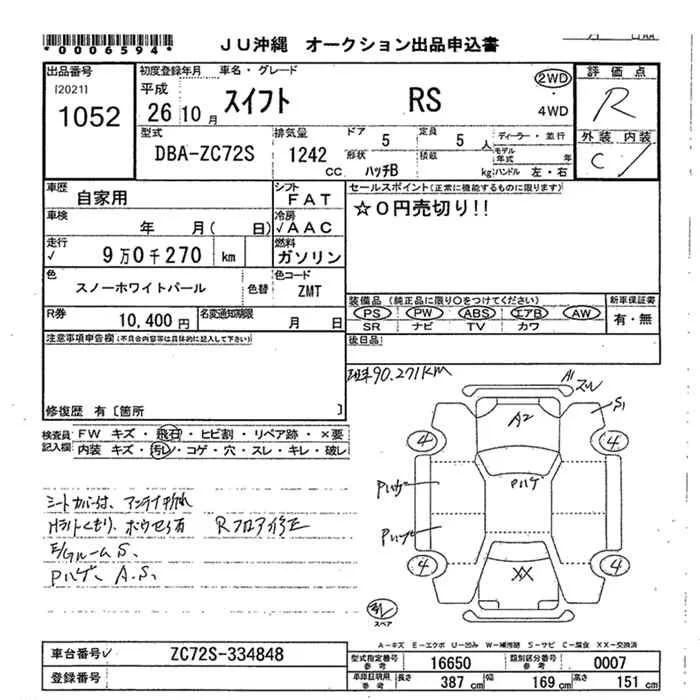 *0006594*
ＪＵ沖縄 オークション出品申込書
出品番号 初度登録年月 車名・グレード 評価点
[2021] 平成 2WD
1052 26 10月 スイフト RS 4WD R
型式 排気量 ドア 5 定員 5人 ディーラー・並行 外装 内装
DBA-ZC72S 1242cc 形状 ハッチB 積載 kg モデル年式 年 ハンドル 左・右 C
車歴 自家用 シフト FAT セールスポイント(正常に機能するものに限ります)
車検 年 月( 日) 冷房 √AAC ☆０円売切り!!
走行 √ 9万0千270 km 燃料 ガソリン
色 スノーホワイトパール 色替 色コード ZMT
装備品(純正品に限り○をつけてください) 新車保証書
R券 10,400円 名変通知期限 月 日 PS PW ABS エアB AW 有・無
SR ナビ TV カワ
注意事項申告欄(不具合内容等は具体的に記入して下さい) 後日品
90.271KM
修復歴 有〔箇所 〕
A1
S1
A2
検査員記入欄 FW キズ・飛石・ヒビ割・リペア跡・×要
内装 キズ・汚レ・コゲ・穴・スレ・キレ・破レ
4 4
Pハゲ
Pハゲ
Pハゲ
シートカバー付、アンテナ折れ
Hライトくもり、 Rフロア修正
E/Gルーム S、
Pハゲ、A.S、
4 4
XX
スペア
A-キズ E-エクボ U-凹み W-補修跡 S-サビ C-腐食 XX-交換済
車台番号√ ZC72S-334848 型式指定番号 参考 16650 類別区分番号 参考 0007
登録番号 車庫証明用 参考 長さ 387cm 幅 169cm 高さ 151cm